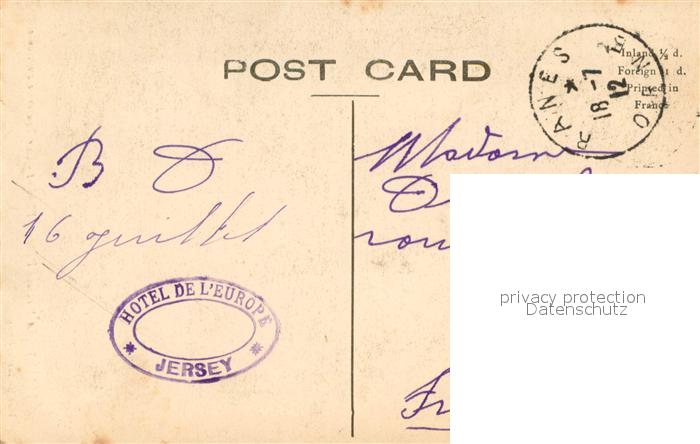 POST CARD
Inland ½ d.
Foreign 1 d.
Printed in
France
RANES
ORNE
18-7
12
B D
16 juillet
Madame
HOTEL DE L'EUROPE
JERSEY
privacy protection
Datenschutz